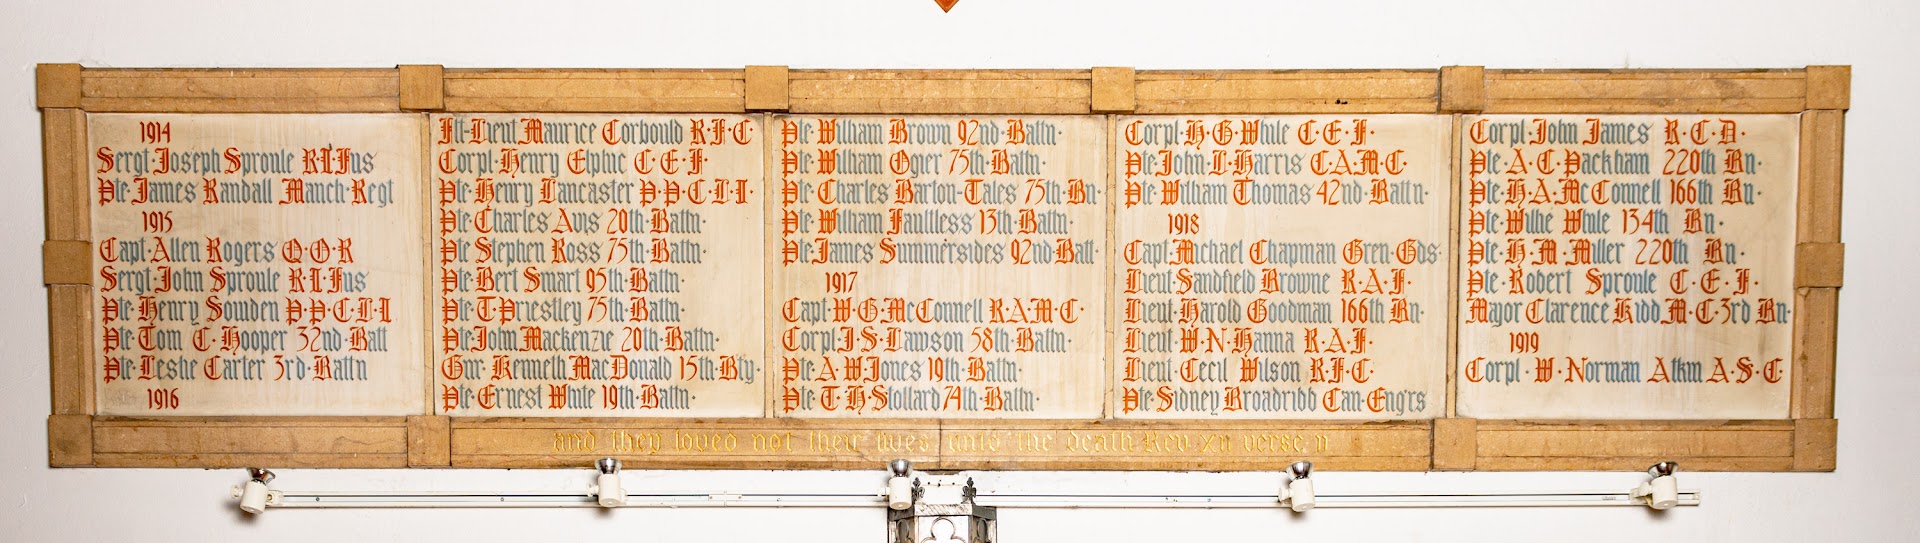 1914
Sergt·Joseph Sproule R·I·Fus
Pte·James Randall Manch·Regt
1915
Capt·Allen Rogers Q·O·R
Sergt·John Sproule R·I·Fus
Pte·Henry Sowden P·P·C·L·I
Pte·Tom C·Hooper 32nd·Batt
Pte·Leslie Carter 3rd·Battn
1916
Flt-Lieut Maurice Corbould R·F·C
Corpl·Henry Elphic C·E·F·
Pte·Henry Lancaster P·P·C·L·I·
Pte·Charles Avis 20th·Battn·
Pte·Stephen Ross 75th·Battn·
Pte·Bert Smart 95th·Battn·
Pte·T·Priestley 75th·Battn·
Pte·John Mackenzie 20th·Battn·
Gnr·Kenneth MacDonald 15th·Bty·
Pte·Ernest White 19th·Battn·
Pte·William Brown 92nd·Battn·
Pte·William Ogier 75th·Battn·
Pte·Charles Burton-Tales 75th·Bn·
Pte·William Faultless 13th·Battn·
Pte·James Summersides 92nd·Batt·
1917
Capt·W·G·McConnell R·A·M·C·
Corpl·J·S·Lawson 58th·Battn·
Pte·A·W·Jones 19th·Battn·
Pte·T·H·Stollard 74th·Battn·
Corpl·H·G·While C·E·F·
Pte·John L·Harris C·A·M·C·
Pte·William Thomas 42nd·Battn·
1918
Capt·Michael Chapman Gren·Gds·
Lieut·Sandfield Browne R·A·F·
Lieut·Harold Goodman 166th Bn·
Lieut·W·N·Hanna R·A·F·
Lieut·Cecil Wilson R·F·C·
Pte·Sidney Broadribb Can·Eng'rs
Corpl·John James R·C·D·
Pte·A·C·Packham 220th Bn·
Pte·H·A·McConnell 166th Bn·
Pte·Willie While 134th Bn·
Pte·H·M·Miller 220th Bn·
Pte·Robert Sproule C·E·F·
Major Clarence Kidd M·C·3rd Bn·
1919
Corpl·W·Norman Atkin A·S·C·
and they loved not their lives unto the death Rev·xii verse·11